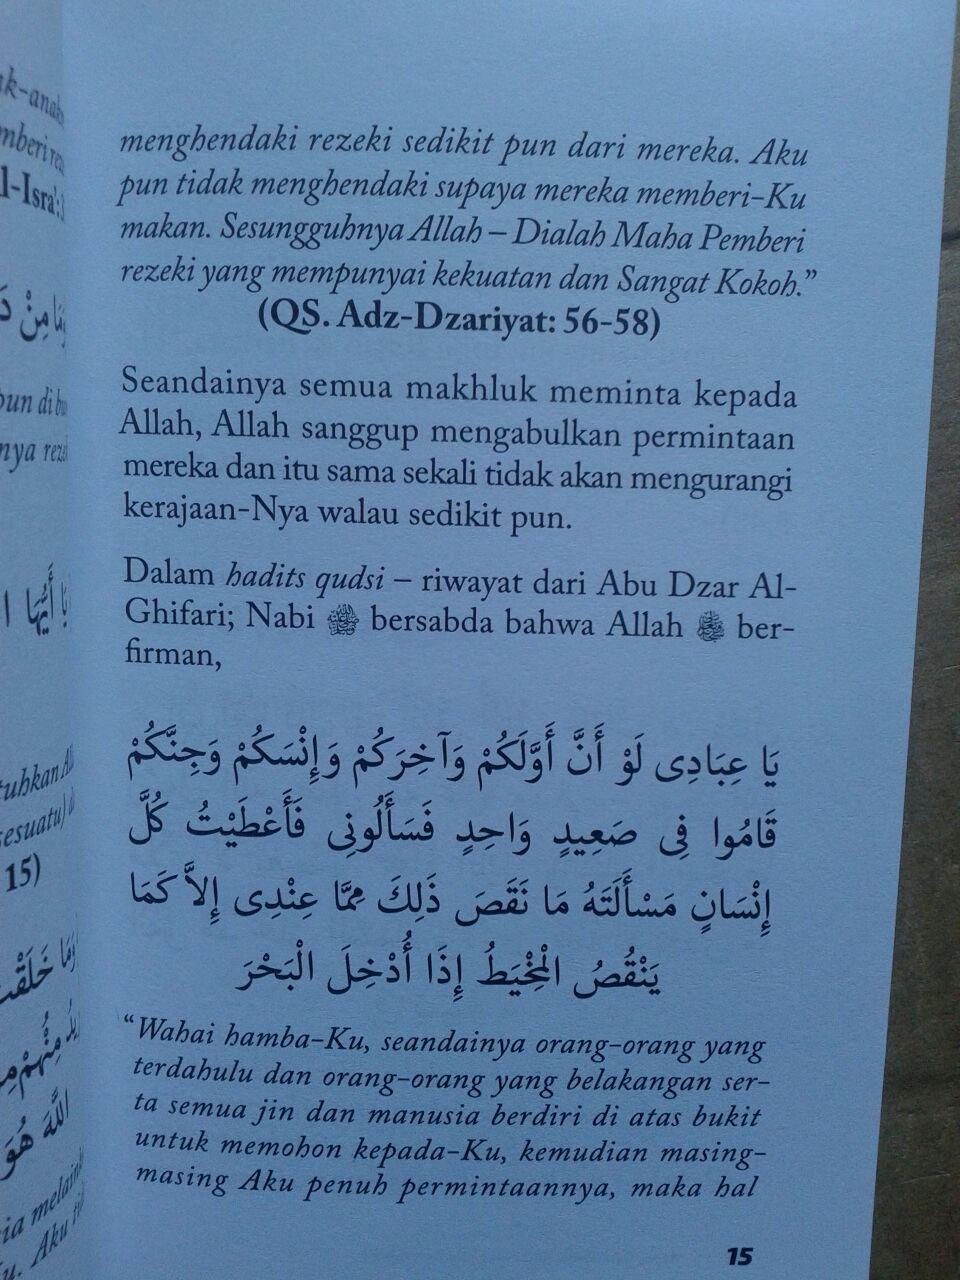 menghendaki rezeki sedikit pun dari mereka. Aku
pun tidak menghendaki supaya mereka memberi-Ku
makan. Sesungguhnya Allah – Dialah Maha Pemberi
rezeki yang mempunyai kekuatan dan Sangat Kokoh.”
(QS. Adz-Dzariyat: 56-58)
Seandainya semua makhluk meminta kepada
Allah, Allah sanggup mengabulkan permintaan
mereka dan itu sama sekali tidak akan mengurangi
kerajaan-Nya walau sedikit pun.
Dalam hadits qudsi – riwayat dari Abu Dzar Al-
Ghifari; Nabi ﷺ bersabda bahwa Allah ber-
firman,
يَا عِبَادِى لَوْ أَنَّ أَوَّلَكُمْ وَآخِرَكُمْ وَإِنْسَكُمْ وَجِنَّكُمْ
قَامُوا فِى صَعِيدٍ وَاحِدٍ فَسَأَلُونِى فَأَعْطَيْتُ كُلَّ
إِنْسَانٍ مَسْأَلَتَهُ مَا نَقَصَ ذَلِكَ مِمَّا عِنْدِى إِلاَّ كَمَا
يَنْقُصُ الْمِخْيَطُ إِذَا أُدْخِلَ الْبَحْرَ
“Wahai hamba-Ku, seandainya orang-orang yang
terdahulu dan orang-orang yang belakangan ser-
ta semua jin dan manusia berdiri di atas bukit
untuk memohon kepada-Ku, kemudian masing-
masing Aku penuh permintaannya, maka hal
15